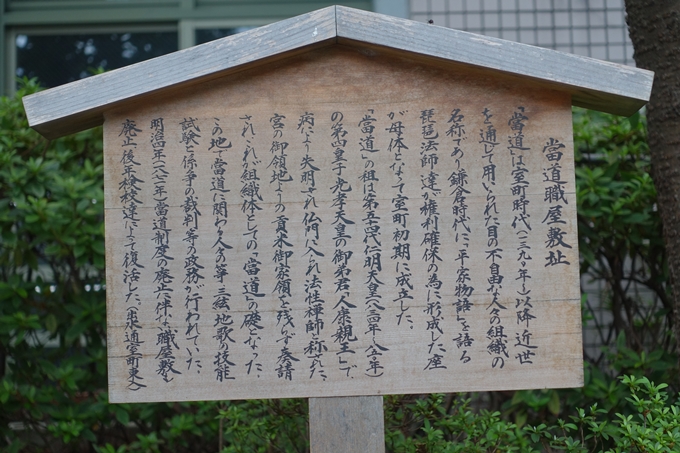 當道職屋敷址
「當道」は室町時代(一三九〇年〜)以降近世
を通して用いられた目の不自由な人々の組織の
名称であり鎌倉時代に「平家物語」を語る
琵琶法師達が権利確保の為に形成した座
が母体となって室町初期に成立した。
「當道」の祖は第五四代仁明天皇(八三四年〜八五〇年)
の第四皇子光孝天皇の御弟君「人康親王」で
病により失明され仏門に入られ法性禅師と称せられた、
宮の御領地よりの貢米御家領を残らず奏請
されこれが組織体としての「當道」の礎となった、
この地で當道に関わる人々の箏三絃地歌の技能
試験と係争の裁判等の政務が行われていた、
明治四年(一八七一年)當道制度の廃止に伴ない職屋敷も
廃止後年検校達によって復活した、(出水通室町東入)